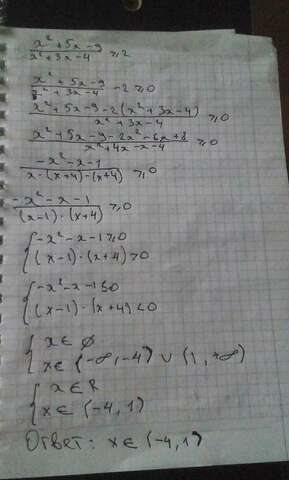 x²+5x-9 / x²+3x-4 ≥2
x²+5x-9 / x²+3x-4 -2 ≥0
x²+5x-9-2(x²+3x-4) / x²+3x-4 ≥0
x²+5x-9-2x²-6x+8 / x²+4x-x-4 ≥0
-x²-x-1 / x·(x+4)-(x+4) ≥0
-x²-x-1 / (x-1)·(x+4) ≥0
{ -x²-x-1≥0
(x-1)·(x+4)>0
{ -x²-x-1≤0
(x-1)·(x+4)<0
{ x∈ ∅
x∈ (-∞,-4) ∪ (1,+∞)
{ x∈R
x∈ (-4,1)
Ответ: x∈(-4,1)